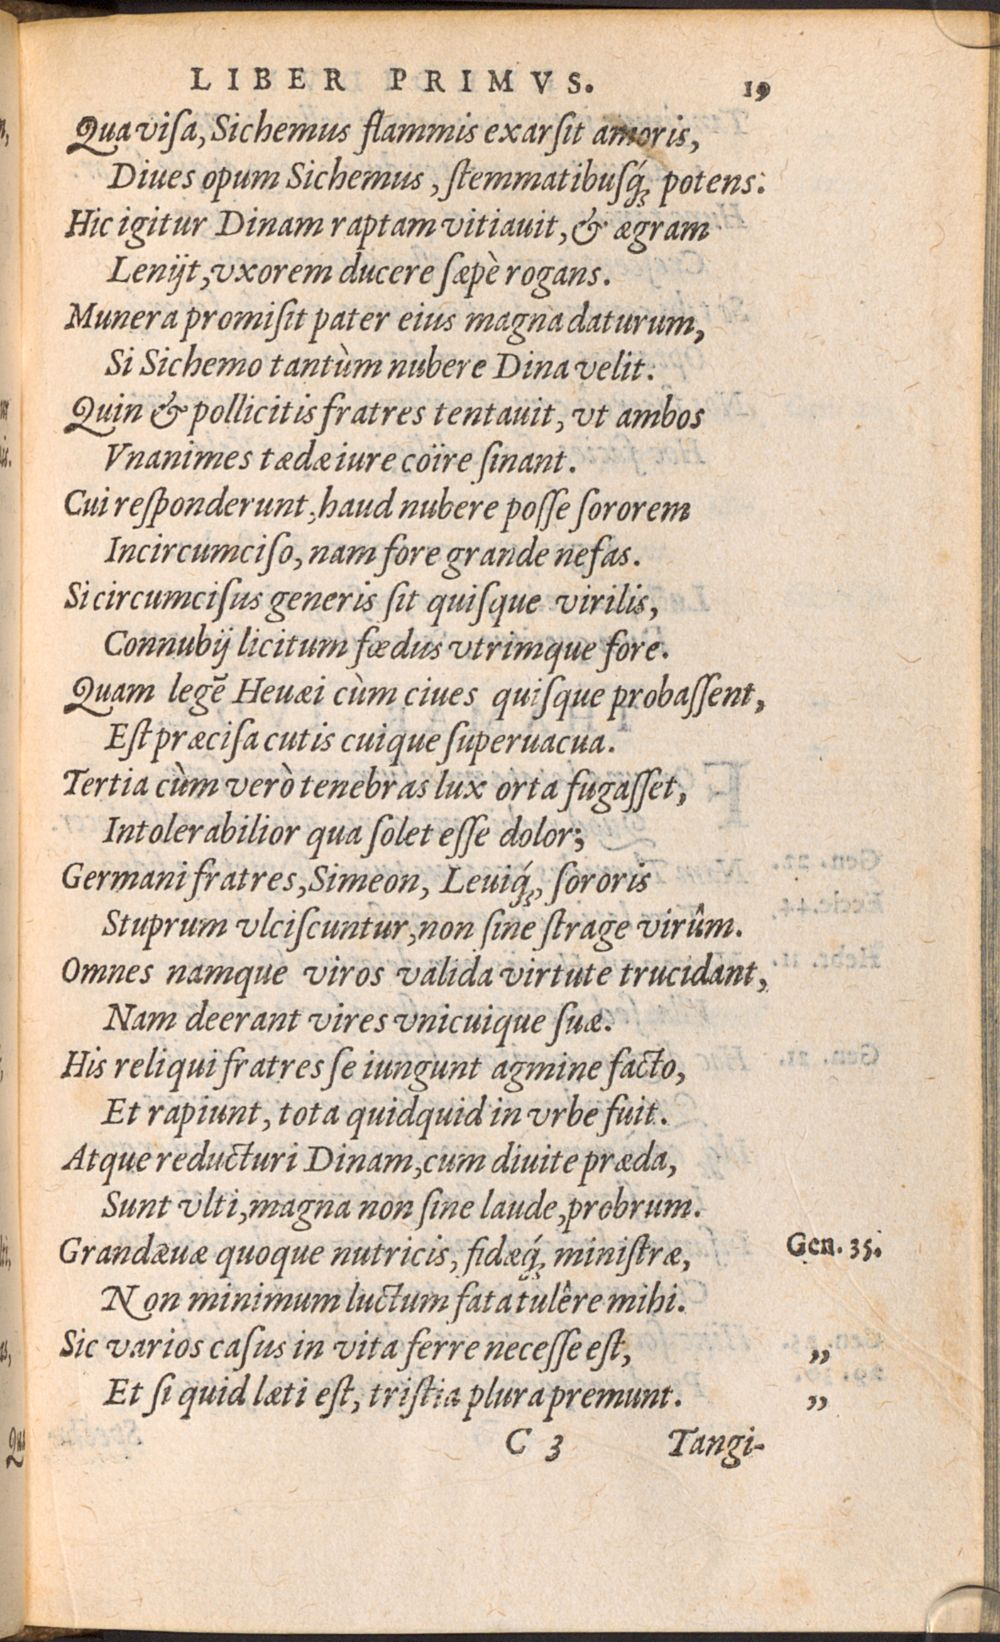 LIBER PRIMVS. 19
Qua viſa, Sichemus flammis exarſit amoris,
Diues opum Sichemus, ſtemmatibuſq́ꝫ potens.
Hic igitur Dinam raptam vitiauit, & ægram
Lenijt, vxorem ducere ſæpè rogans.
Munera promiſit pater eius magna daturum,
Si Sichemo tantùm nubere Dina velit.
Quin & pollicitis fratres tentauit, vt ambos
Vnanimes tædæ iure coïre ſinant.
Cui reſponderunt, haud nubere poſſe ſororem
Incircumciſo, nam fore grande nefas.
Si circumciſus generis ſit quiſque virilis,
Connubij licitum fœdus vtrimque fore.
Quam legē Heuæi cùm ciues quiſque probaſſent,
Eſt præciſa cutis cuique ſuperuacua.
Tertia cùm verò tenebras lux orta fugaſſet,
Intolerabilior qua ſolet eſſe dolor;
Germani fratres, Simeon, Leuiq́ꝫ, ſororis
Stuprum vlciſcuntur, non ſine ſtrage virûm.
Omnes namque viros valida virtute trucidant,
Nam deerant vires vnicuique ſuæ.
His reliqui fratres ſe iungunt agmine facto,
Et rapiunt, tota quidquid in vrbe fuit.
Atque reducturi Dinam, cum diuite præda,
Sunt vlti, magna non ſine laude, probrum.
Grandæuæ quoque nutricis, fidæq́ꝫ miniſtræ, Gen. 35.
Non minimum luctum fata tulêre mihi.
Sic varios caſus in vita ferre neceſſe eſt, „
Et ſi quid læti eſt, triſtia plura premunt. „
C 3 Tangi-